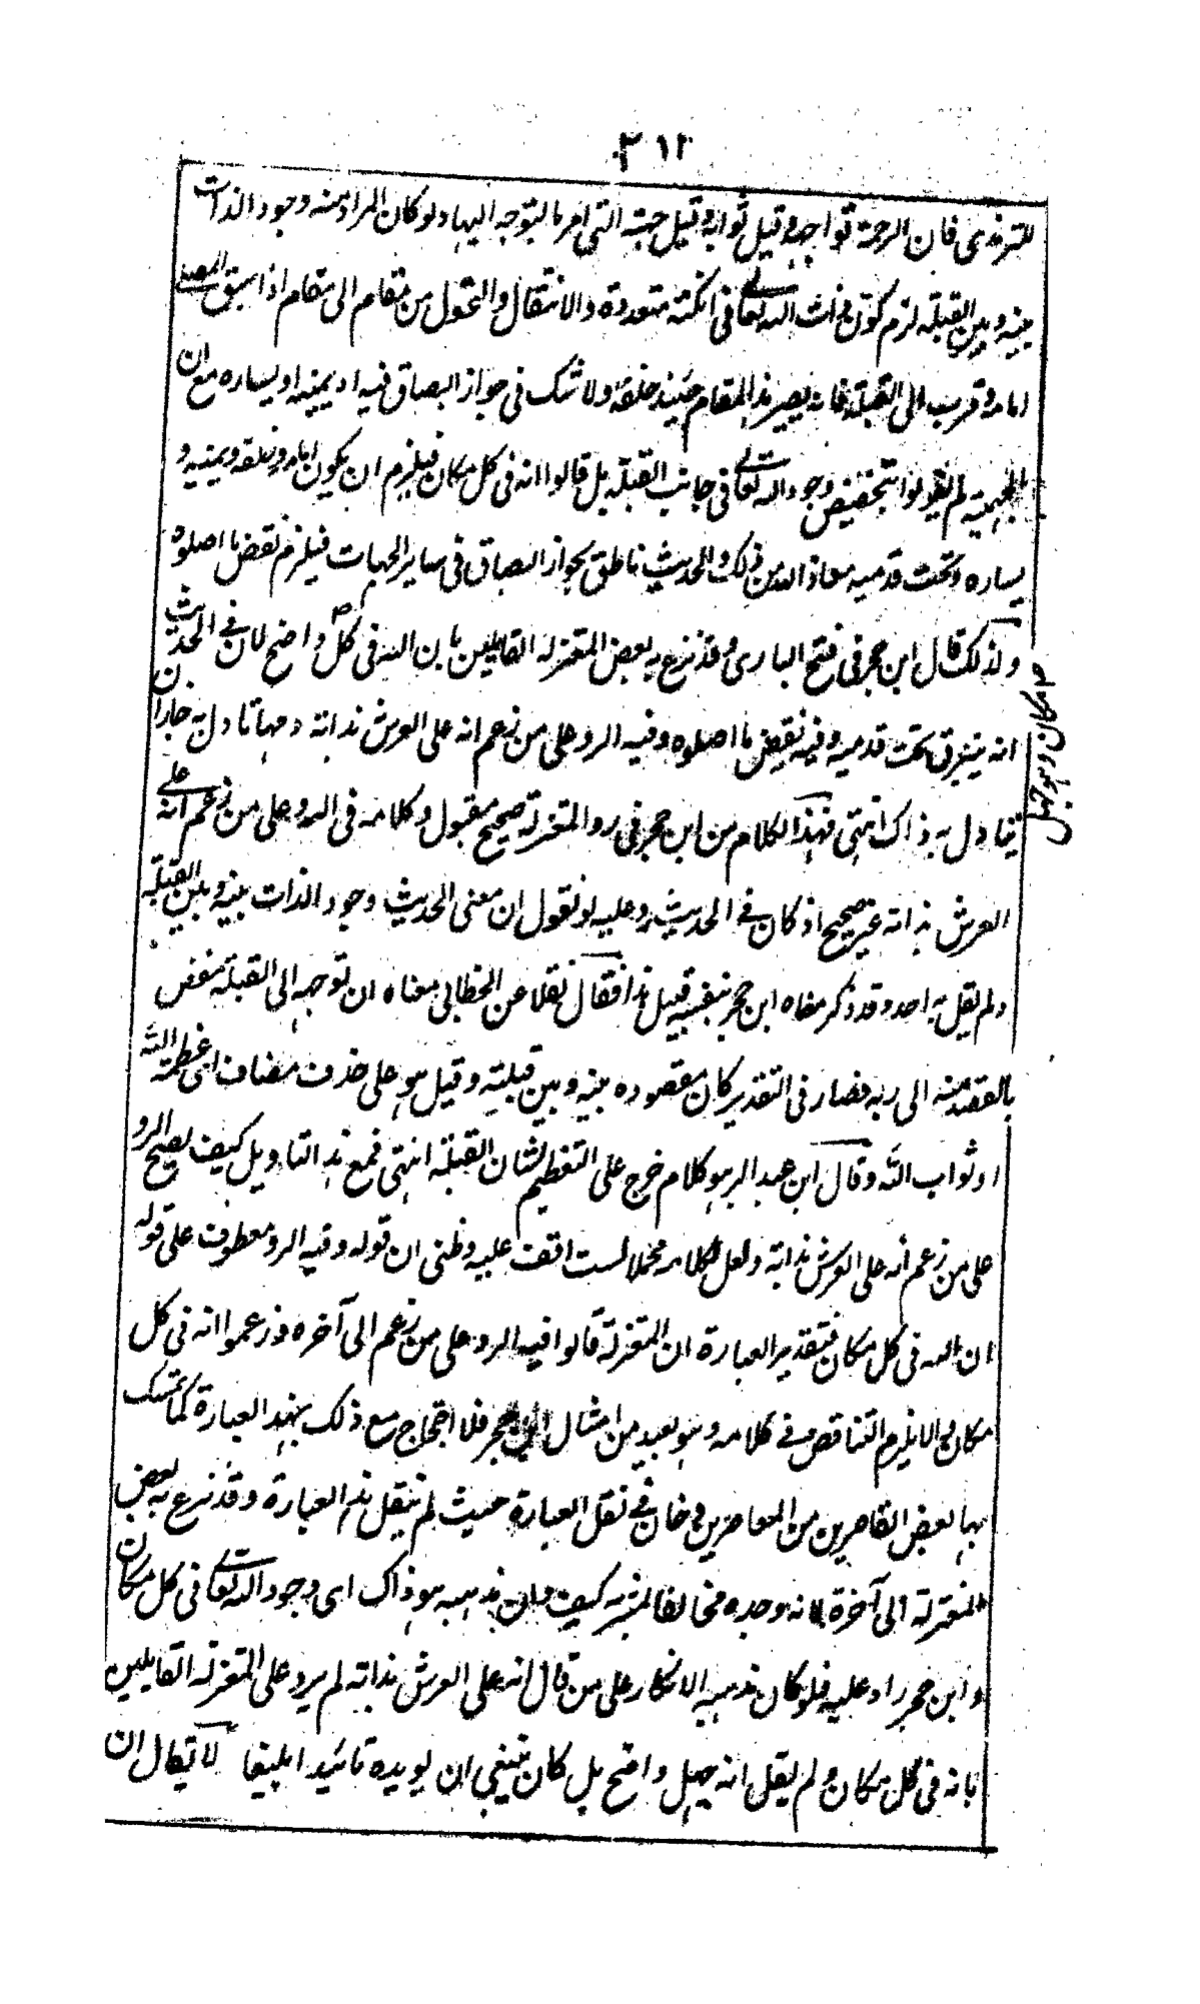 ٣١٢
للترمذى فان الرحمة تواجهه وقيل ثوابه وقيل جهته التى امر بالتوجه اليها ولو كان المراد منه وجود الذات
بينه وبين القبلة لزم كون ذات الله تعالى فى امكنة متعددة والانتقال والتحول من مقام الى مقام اذا سبق المصلى
امامه وقرب الى القبلة فانه يصير هذا المقام حينئذ خلفه ولا شك فى جواز البصاق فيه او يمينه او يساره مع ان
الجهمية لم يقولوا بتخصيص وجود الله تعالى فى جانب القبلة بل قالوا انه فى كل مكان فيلزم ان يكون امامه وخلفه ويمينه و
يساره وتحت قدميه معاذ الله من ذلك والحديث ناطق بجواز البصاق فى ساير الجهات فيلزم نقض ما اصلوه
ولذلك قال ابن حجر فى فتح البارى وقد نزع به بعض المعتزلة القايلين بان الله فى كل واضح لان فى الحديث
مكان وهو جهل
انه يبزق تحت قدميه وفيه نقيض ما اصلوه وفيه الرد على من زعم انه على العرش بذاته ومهما تاول به جاز ان
يتاول به ذاك انتهى فهذا الكلام من ابن حجر فى رد المعتزلة صحيح مقبول وكلامه فى الرد على من زعم انه على
العرش بذاته غير صحيح اذ كان فى الحديث رد عليه لو نقول ان معنى الحديث وجود الذات بينه وبين القبلة
ولم يقل به احد وقد ذكر معناه ابن حجر بنفسه قبيل هذا فقال نقلا عن الخطابى معناه ان توجهه الى القبلة مفض
بالقصد منه الى ربه فصار فى التقدير كان مقصوده بينه وبين قبلته وقيل هو على حذف مضاف اى عظمة الله
او ثواب الله وقال ابن عبد البر هو كلام خرج على التعظيم لشان القبلة انتهى فمع هذا التاويل كيف يصح الرد
على من زعم انه على العرش بذاته ولعل لكلامه محملا لست اقف عليه وظنى ان قوله وفيه الرد معطوف على قوله
ان الله فى كل مكان فتقدير العبارة ان المعتزلة قالوا فيه الرد على من زعم الى آخره وزعموا انه فى كل
مكان والا يلزم التناقض فى كلامه وهو بعيد من امثال ابن حجر فلا احتجاج مع ذلك بهذه العبارة كما تمسك
بها بعض القاصرين من المعاصرين وخان فى نقل العبارة حيث لم ينقل هذه العبارة وقد نزع به بعض
المعتزلة الى آخرة لانه وجده مخالفا لمذهبه كيف وان مذهبه هو ذاك اى وجود الله تعالى فى كل مكان
وابن حجر راد عليه فلو كان مذهبه الانكار على من قال انه على العرش بذاته لم يرد على المعتزلة القايلين
بانه فى كل مكان ولم يقل انه جهل واضح بل كان ينبغى ان يويده تائيدا بليغا لا يقال ان